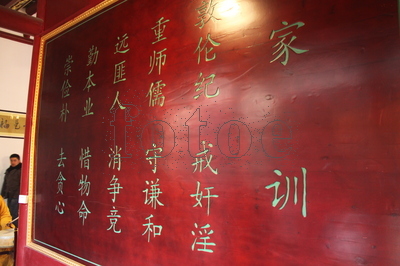 家训
敦伦纪 戒奸淫
重师儒 守谦和
远匪人 消争竞
勤本业 惜物命
崇俭朴 去贪心
fotoe